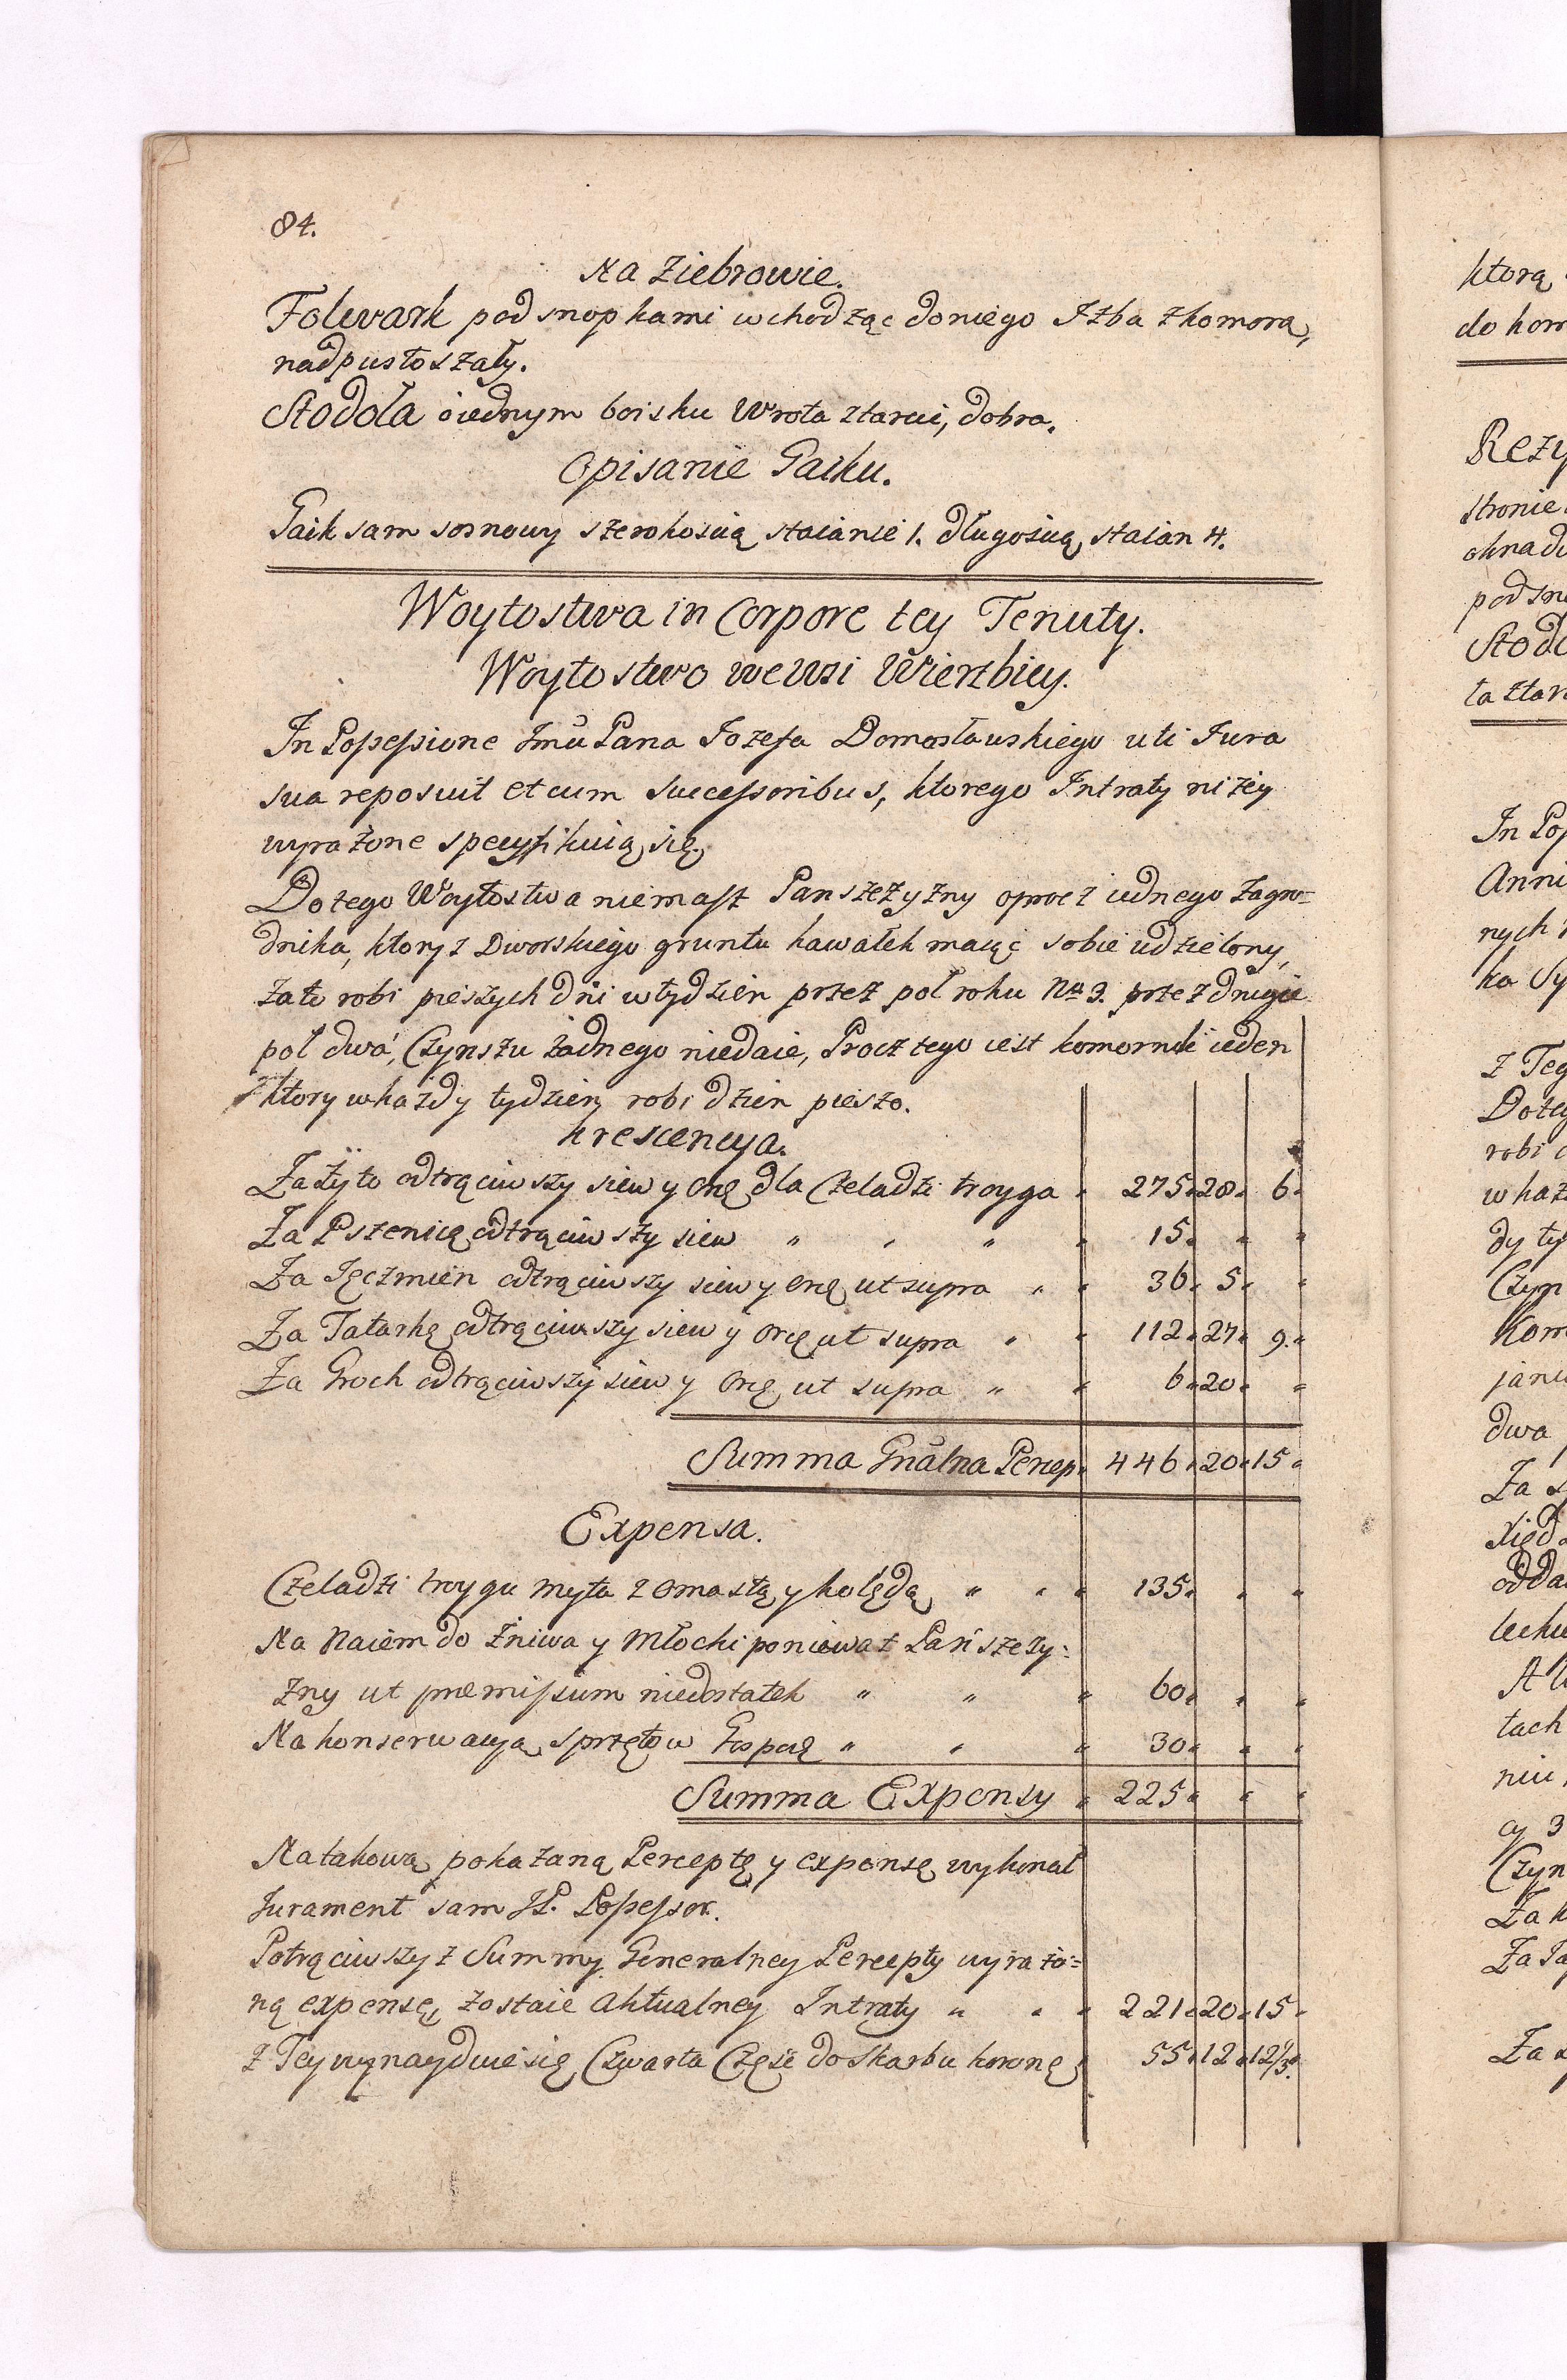 84.
Na Ziebrowie.
Folwark pod snopkami wchodząc do niego Izba z komorą,
nadpustoszały.
Stodoła o iednym boisku Wrota z tarcic, dobra.
Opisanie Gaiku.
Gaik sam sosnowy szerokością staianie 1. długością staian 4.
Woytostwa in Corpore tey Tenuty.
Woytostwo we Wsi Wierzbicy.
In Possessione Jmci Pana Jozefa Domosławskiego uti Jura
sua reposuit et cum Successoribus, ktorego Intraty niżey
wyrażone specyfikuią się.
Do tego Woytostwa niemasz Panszczyzny oprocz iednego Zagro=
dnika, ktory z Dworskiego gruntu kawałek maiąc sobie udzielony,
za to robi pieszych dni w tydzien przez poł roku Nro 3. przez drugie
poł dwa, Czynszu żadnego niedaie, Procz tego iest komornik ieden
ktory w każdy tydzien robi dzien pieszo.
Krescencya.
Za Żyto odtrąciwszy siew y Orę dla Czeladzi troyga " 275 " 28 " 6 "
Za Pszenicę odtrąciwszy siew " " " " 15 " " "
Za Jęczmien odtrąciwszy siew y Orę ut supra " " 36 " 5 " "
Za Tatarkę odtrąciwszy siew y Orę ut supra " " 112 " 27 " 9 "
Za Groch odtrąciwszy siew y Orę ut supra " " 6 " 20 " "
Summa Gnalna Percep " 446 " 20 " 15 "
Expensa.
Czeladzi troygu Myta z omastą y kolędą " " " 135 " " "
Na Naiem do Żniwa y Młocki poniewaz Panszczy:
zny ut premissum niedostatek " " " 60 " " "
Na konserwacyą sprzętow Gospod " " " 30 " " "
Summa Expensy " 225 " " "
Na takową pokazaną Perceptę y expensę wykonał
Jurament sam JP. Possessor.
Potrąciwszy z Summy Generalney Percepty wyrażo=
ną expensę, zostaie aktualney Intraty " " " 221 " 20 " 15 "
z Tey wynayduie się Czwarta Część do Skarbu koronę " 55 " 12 " 12 1/3 "